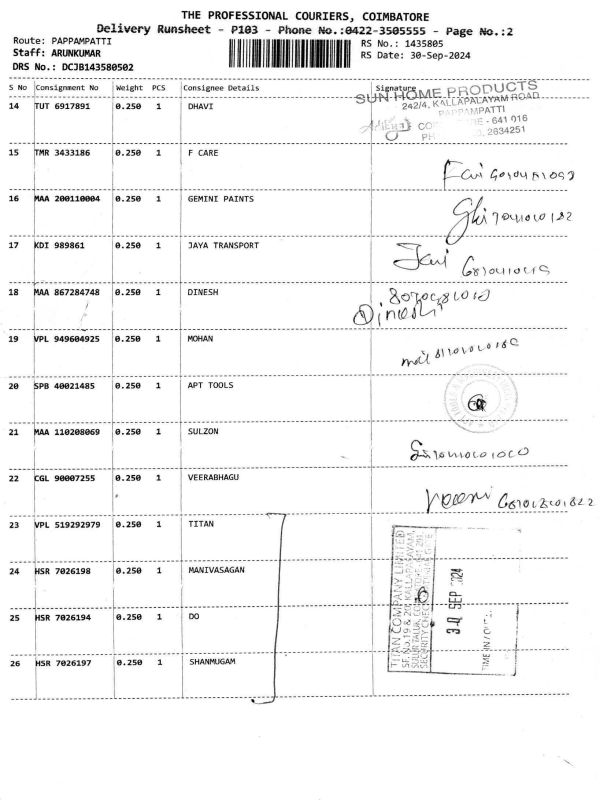 THE PROFESSIONAL COURIERS, COIMBATORE
Delivery Runsheet - P103 - Phone No.:0422-3505555 - Page No.:2
Route: PAPPAMPATTI
RS No.: 1435805
Staff: ARUNKUMAR
RS Date: 30-Sep-2024
DRS No.: DCJB143580502
S No Consignment No Weight PCS Consignee Details Signature
14 TUT 6917891 0.250 1 DHAVI
SUN HOME PRODUCTS
242/4, KALLAPALAYAM ROAD
PAPPAMPATTI
- 641 016
2634251
15 TMR 3433186 0.250 1 F CARE
16 MAA 200110004 0.250 1 GEMINI PAINTS
17 KDI 989861 0.250 1 JAYA TRANSPORT
18 MAA 867284748 0.250 1 DINESH
Dinesh
19 VPL 949604925 0.250 1 MOHAN
20 SPB 40021485 0.250 1 APT TOOLS
21 MAA 110208069 0.250 1 SULZON
22 CGL 90007255 0.250 1 VEERABHAGU
23 VPL 519292979 0.250 1 TITAN
24 HSR 7026198 0.250 1 MANIVASAGAN
25 HSR 7026194 0.250 1 DO
26 HSR 7026197 0.250 1 SHANMUGAM
TITAN COMPANY LIMITED
30 SEP 2024
TIME IN / OUT